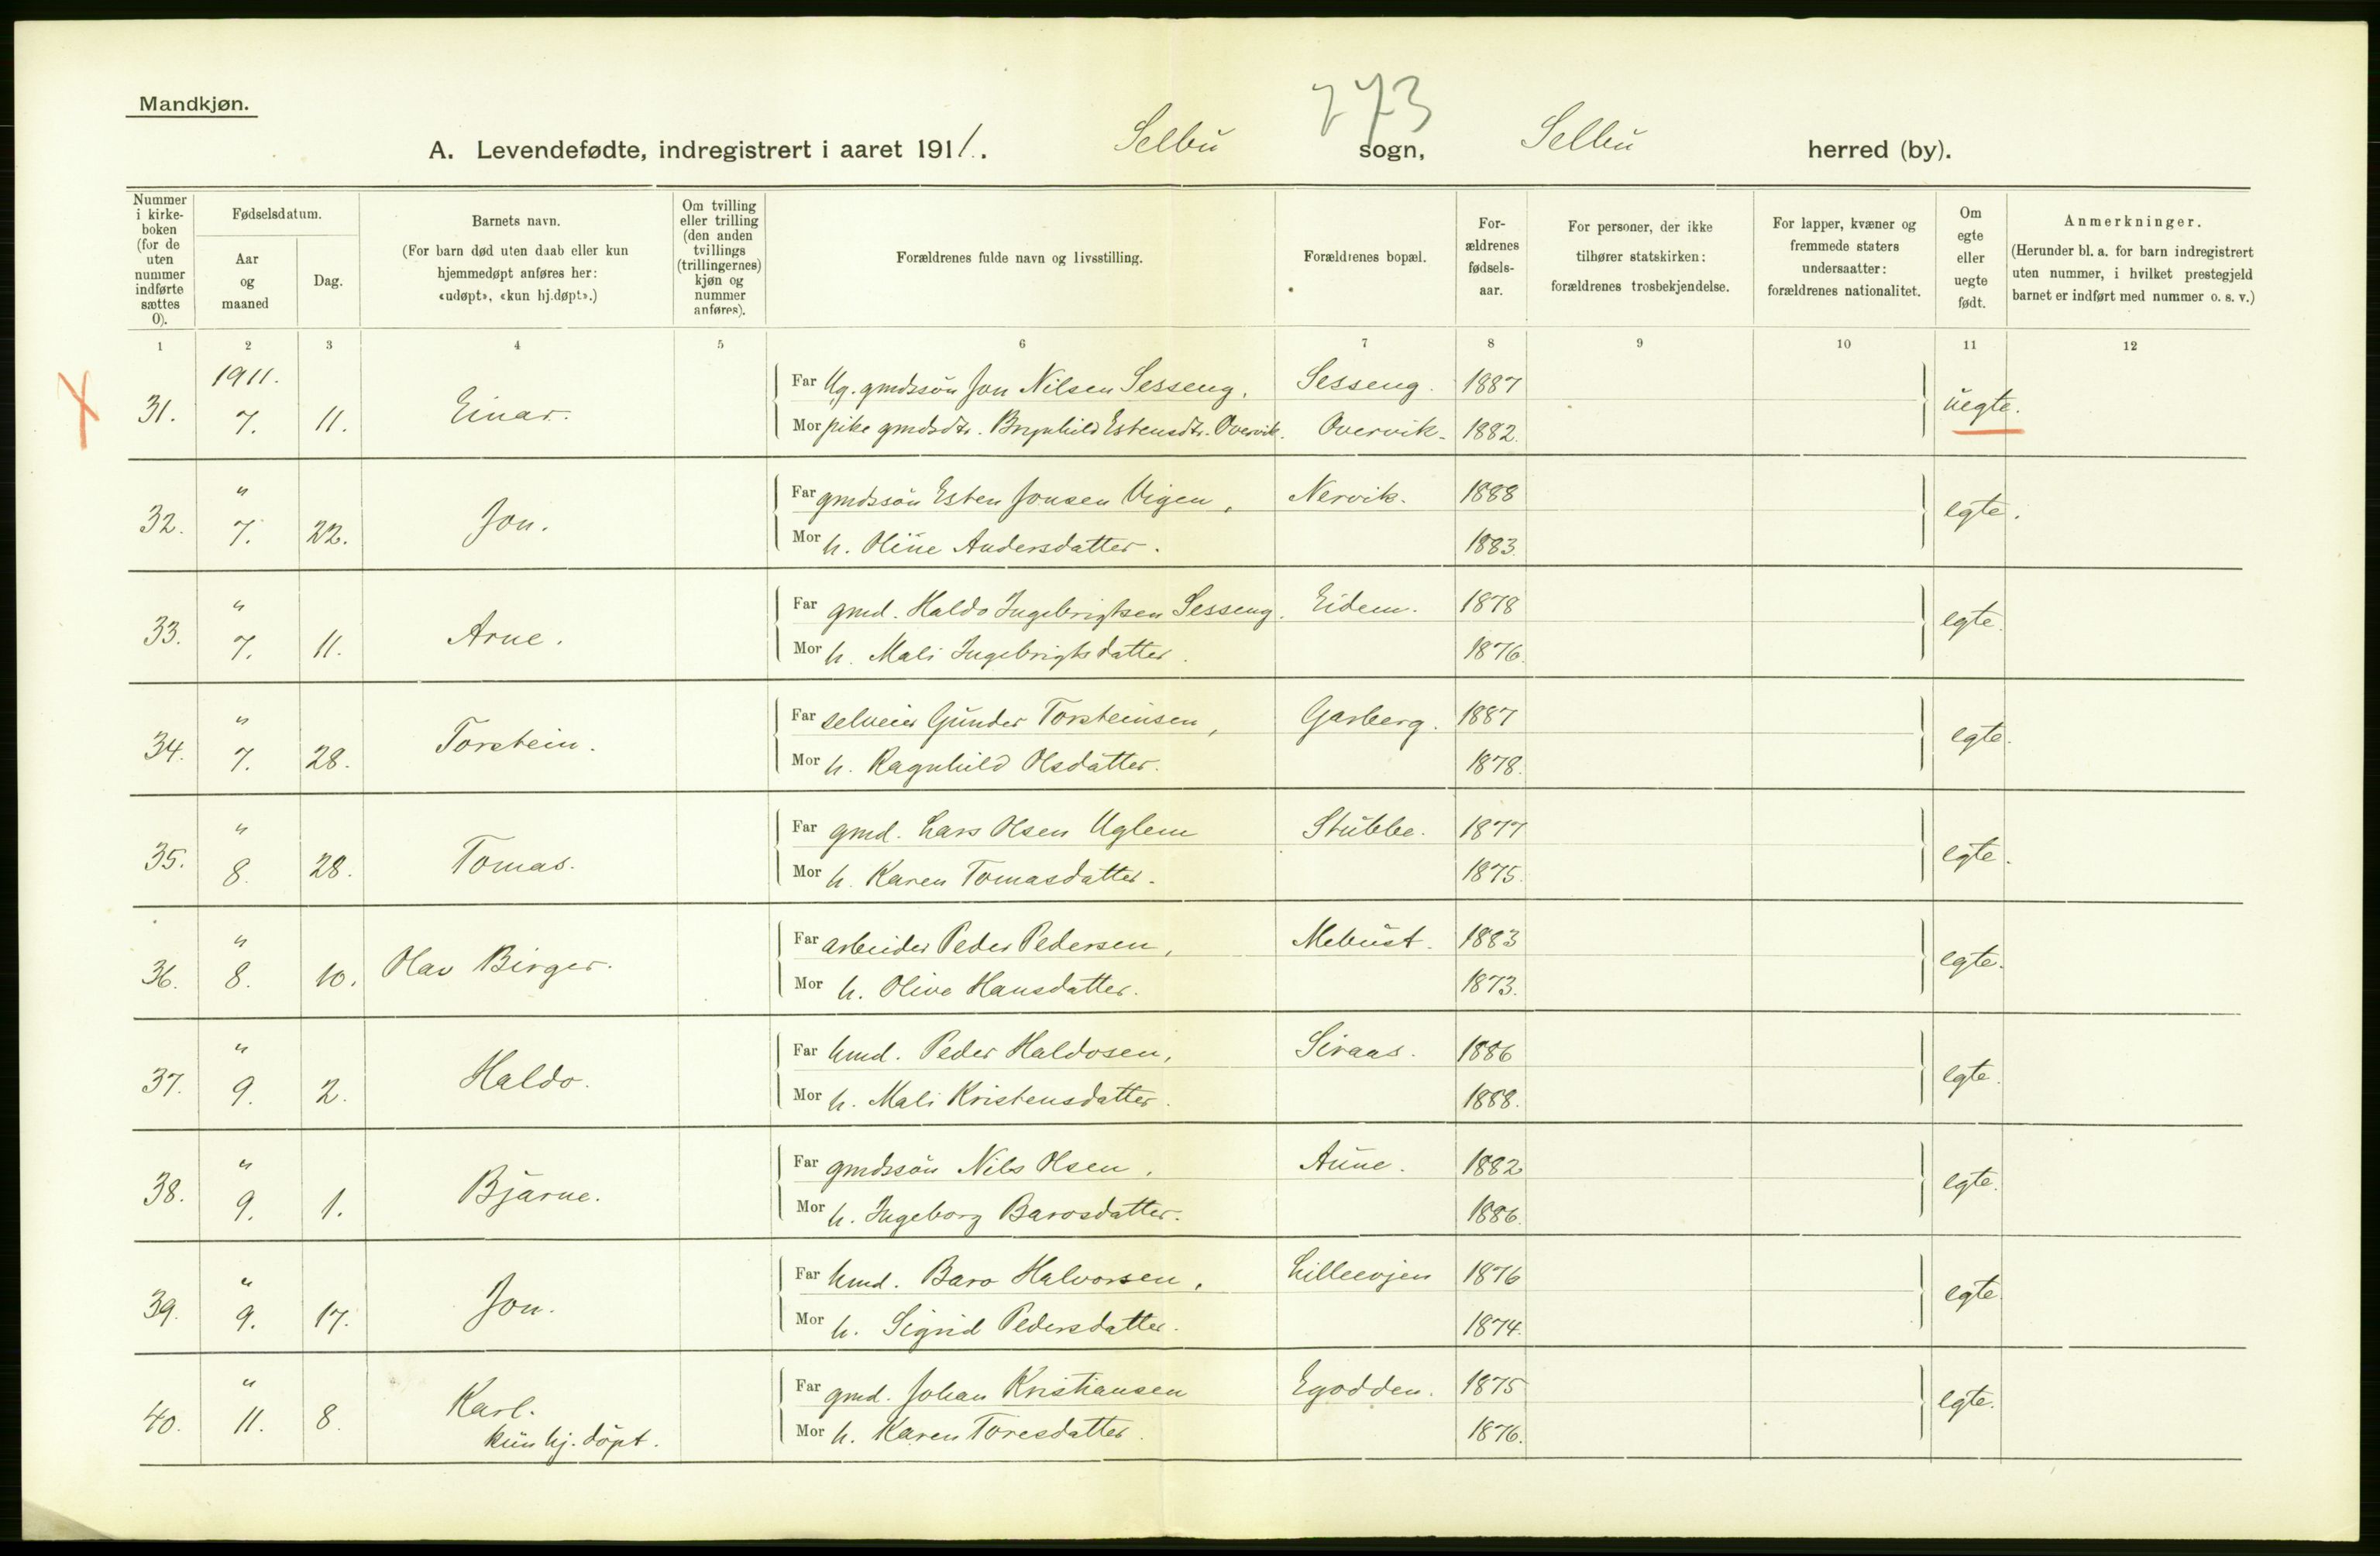 Mandkjøn.
273
A. Levendefødte, indregistrert i aaret 1911. Selbu sogn, Selbu herred (by).
Nummer i kirke-boken (for de uten nummer indførte sættes 0).
Fødselsdatum.
Aar og maaned
Dag.
Barnets navn.
(For barn død uten daab eller kun hjemmedøpt anføres her: «udøpt», «kun hj.døpt».)
Om tvilling eller trilling (den anden tvillings (trillingernes) kjøn og nummer anføres).
Forældrenes fulde navn og livsstilling.
Forældrenes bopæl.
For-ældrenes fødsels-aar.
For personer, der ikke tilhører statskirken: forældrenes trosbekjendelse.
For lapper, kvæner og fremmede staters undersaatter: forældrenes nationalitet.
Om egte eller uegte født.
Anmerkninger.
(Herunder bl. a. for barn indregistrert uten nummer, i hvilket prestegjeld barnet er indført med nummer o. s. v.)
1 2 3 4 5 6 7 8 9 10 11 12
1911.
31. 7. 11. Einar. Far Ug. gmdssön Jon Nilsen Sesseng. Sesseng. 1887 uegte.
Mor pike gmdsdtr. Brynhild Estensdtr. Overvik. Overvik. 1882.
32. " 7. 22. Jon. Far gmdssön Esten Jonsen Vigen, Nervik. 1888 egte.
Mor h. Oline Andersdatter. 1883.
33. " 7. 11. Arne. Far gmd. Haldo Ingebrigtsen Sesseng. Eidem. 1878 egte.
Mor h. Mali Ingebrigtsdatter. 1876.
34. " 7. 28. Torstein. Far selveier Gunder Torsteinsen, Garberg. 1887 egte.
Mor h. Ragnhild Olsdatter. 1878.
35. " 8. 28. Tomas. Far gmd. Lars Olsen Uglem Stubbe. 1877 egte.
Mor h. Karen Tomasdatter. 1875.
36. " 8. 10. Olav Birger. Far arbeider Peder Pedersen, Mebust. 1883 egte.
Mor h. Olive Hansdatter. 1873.
37. " 9. 2. Haldo. Far hmd. Peder Haldosen, Siraas. 1886 egte.
Mor h. Mali Kristensdatter. 1888.
38. " 9. 1. Bjarne. Far gmdssön Nils Olsen, Aune. 1882 egte.
Mor h. Ingeborg Barosdatter. 1886.
39. " 9. 17. Jon. Far hmd. Baro Halvorsen, Lilleevjen 1876 egte.
Mor h. Sigrid Pedersdatter. 1874.
40. " 11. 8. Karl. Far gmd. Johan Kristiansen Egodden. 1875 egte.
kun hj. döpt. Mor h. Karen Toresdatter. 1876.